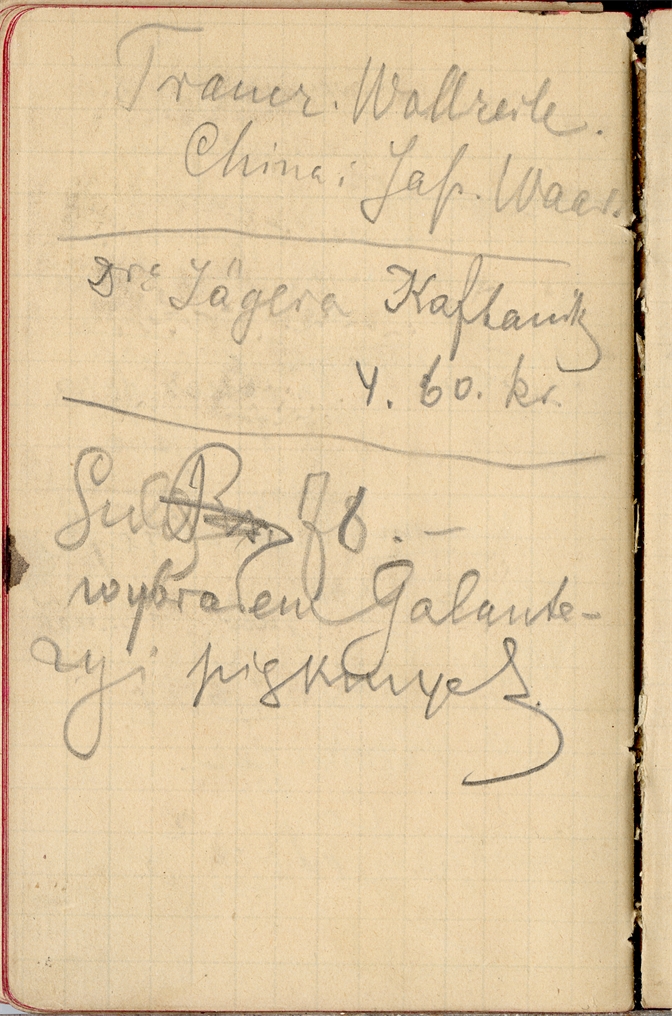 Trauer. Wollzeile.
China i Jap. Waar.
Dra Jägera Kaftanik
4. 60. kr.
76. –
wybrałem Galante-
ryi pięknych